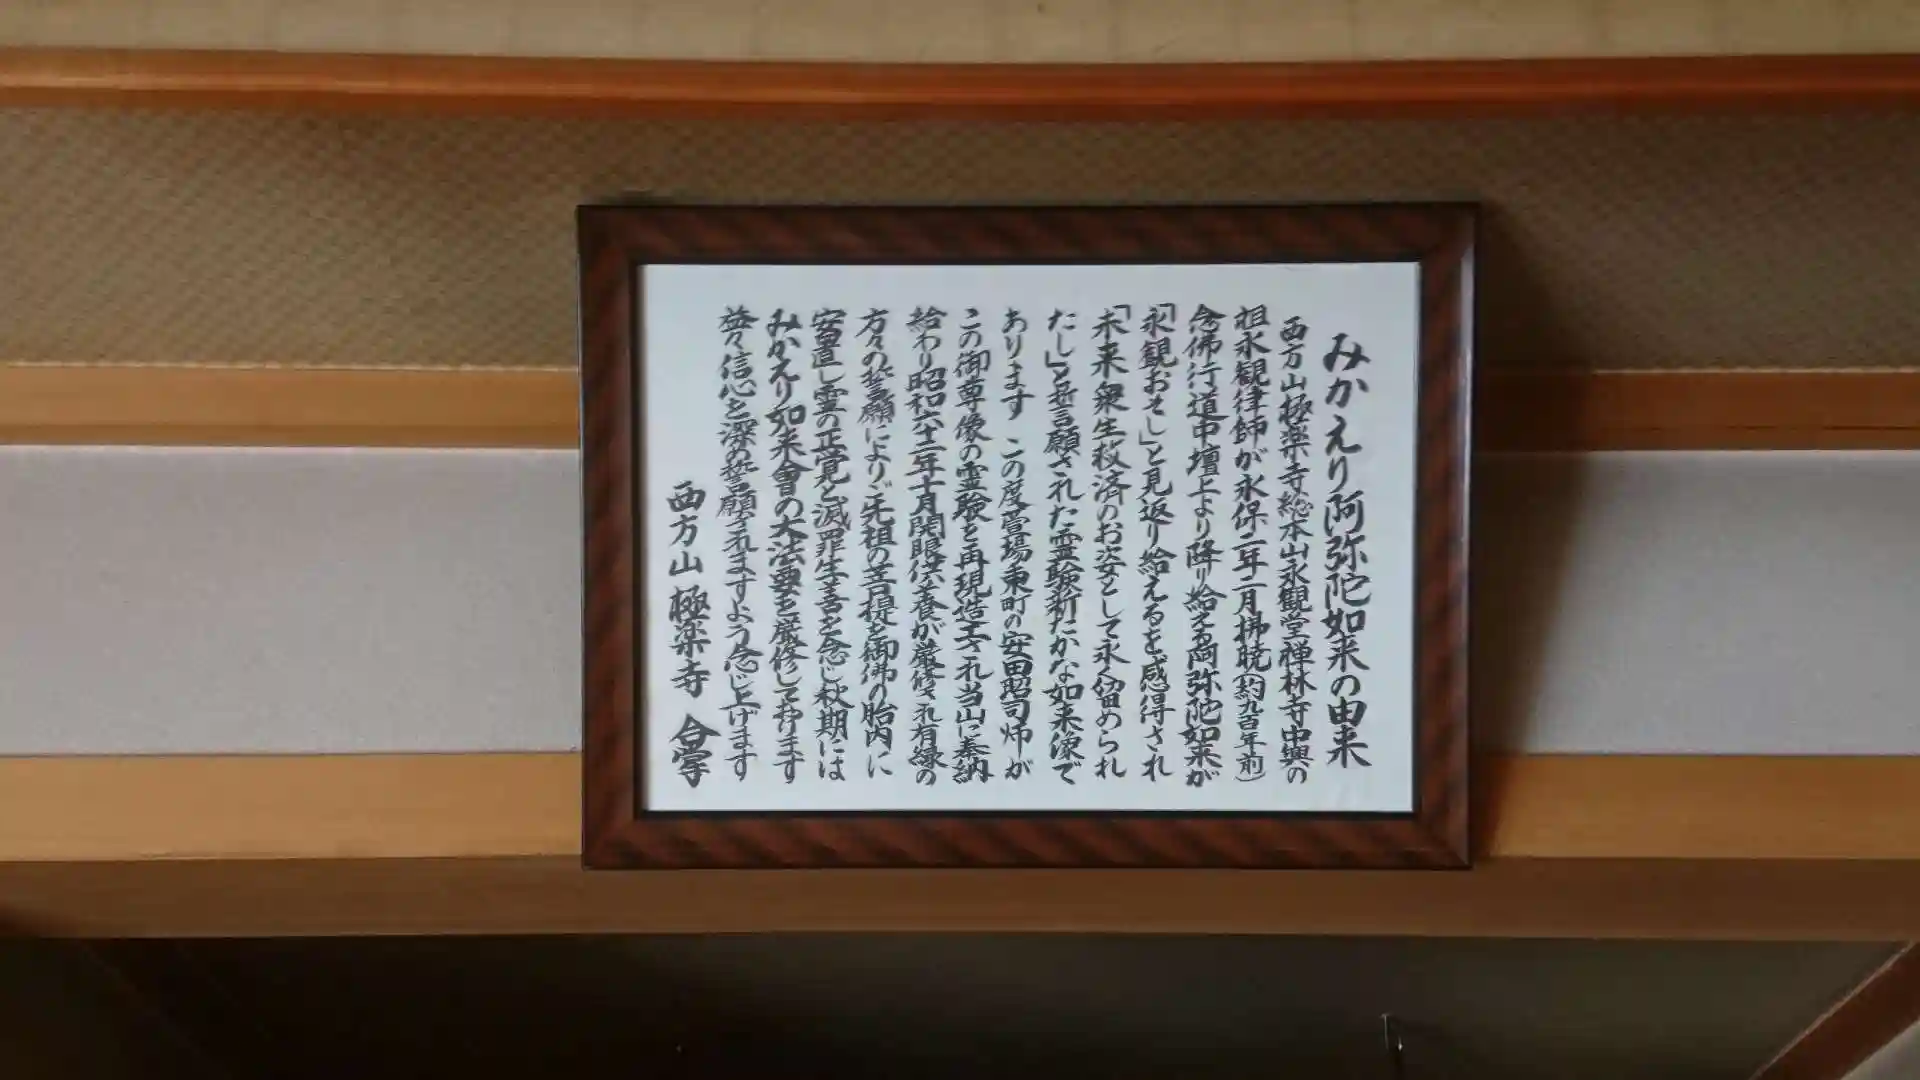 みかえり阿弥陀如来の由来
西方山極楽寺総本山永観堂禅林寺中興の
祖永観律師が永保二年二月拂暁(約九百年前)
念佛行道中壇上より降り給える阿弥陀如来が
「永観おそし」と見返り給えるを感得され
「未来衆生救済のお姿として永く留められ
たし」と誓言願された霊験新たかな如来像で
あります この度萱場東町の安田昭司師が
この御尊像の霊験を再現造立され当山に奉納
給わり昭和六十二年十月開眼供養が厳修され有縁の
方々の誓願によりご先祖の菩提を御佛の胎内に
安置し霊の正覚と滅罪生善を念じ秋期には
みかえり如来會の大法要を厳修して居ります
益々信心を深め誓願されますよう念じ上げます
西方山 極楽寺 合掌